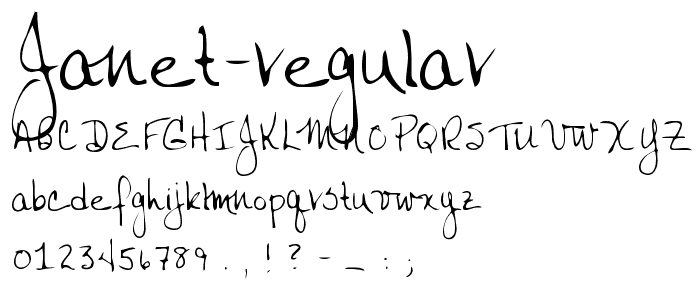 Janet-regular
ABCDEFGHIJKLMNOPQRSTUVWXYZ
abcdefghijklmnopqrstuvwxyz
0123456789 . , ! ? - _ : ;